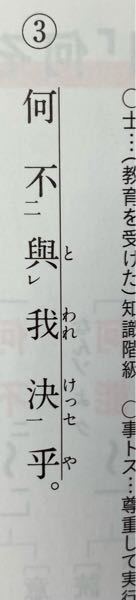 ○士…(教育を受けた)知識階級 ○事トス…尊重して実行
③
何不二與レ我決一乎。
と われ けっセ や